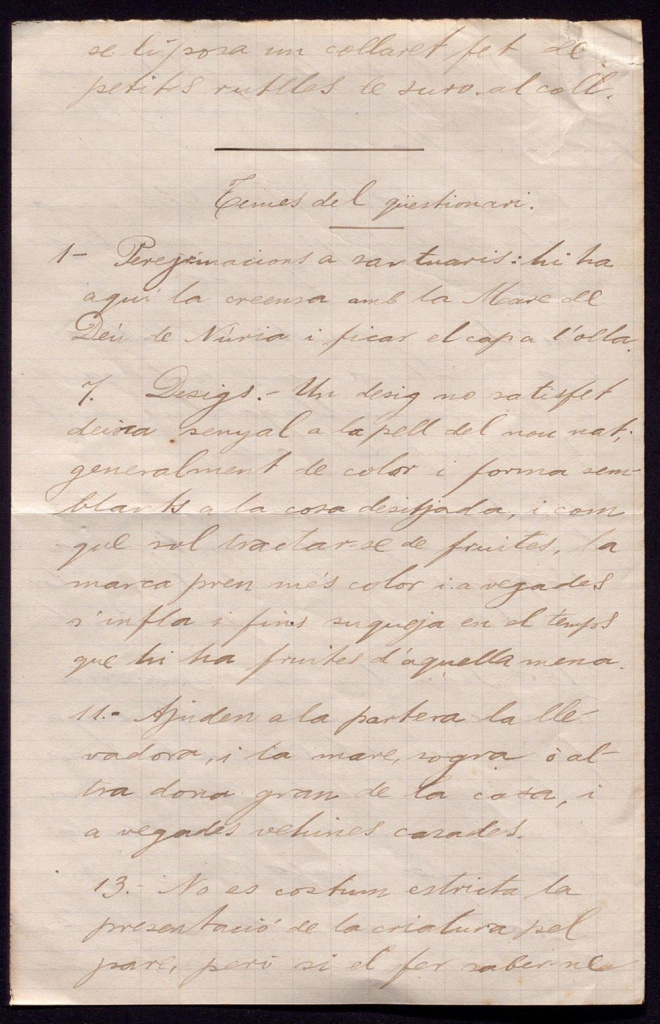 se li posa un collaret fet de
petites rutlles de suro al coll.
Temes del qüestionari.
1- Peregrinacions a santuaris: hi ha
aquí la creensa amb la Mare de
Déu de Núria i ficar el cap a l'olla.
7. Desigs.- Un desig no satisfet
deixa senyal a la pell del nou nat;
generalment de color i forma sem-
blants a la cosa desitjada, i com
que sol tractar-se de fruites, la
marca pren més color i a vegades
s'infla i fins suqueja en el temps
que hi ha fruites d'aquella mena.
11.- Ajuden a la partera la lle-
vadora, i la mare, sogra o al-
tra dona gran de la casa, i
a vegades vehines casades.
13.- No es costum estricta la
presentació de la criatura pel
pare, però si el fer saber-ne